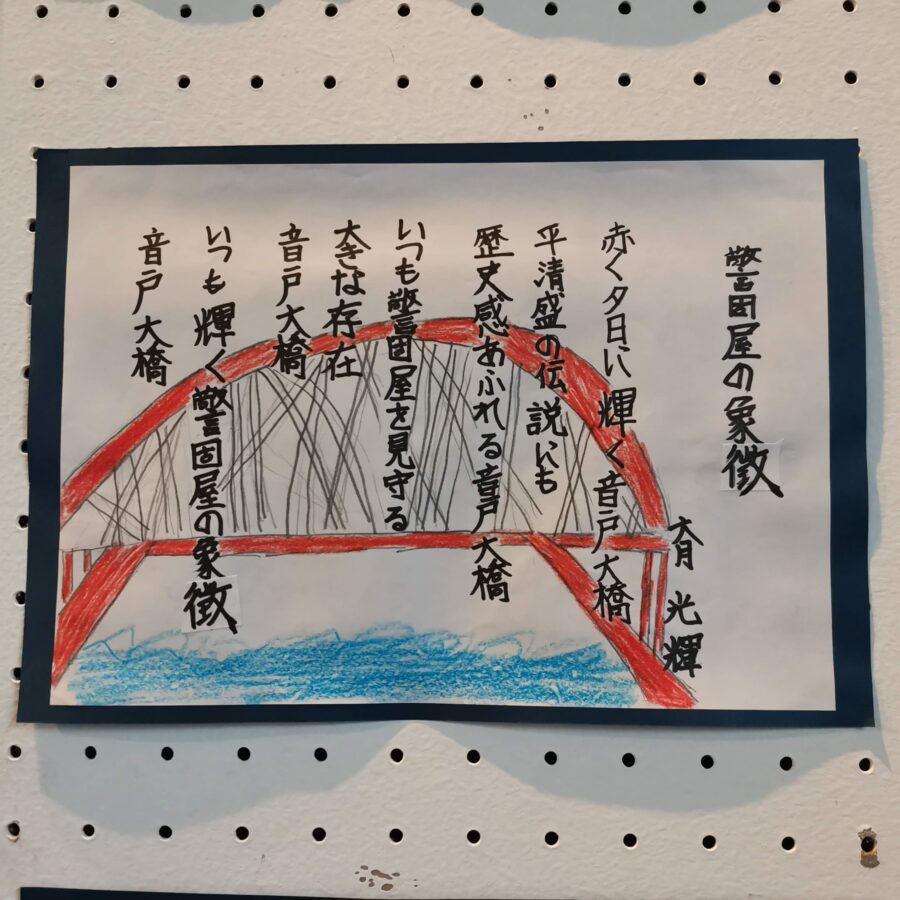 警固屋の象徴
光輝
赤く夕日に輝く音戸大橋
平清盛の伝説にも
歴史感あふれる音戸大橋
いつも警固屋を見守る
大きな存在
音戸大橋
いつも輝く警固屋の象徴
音戸大橋